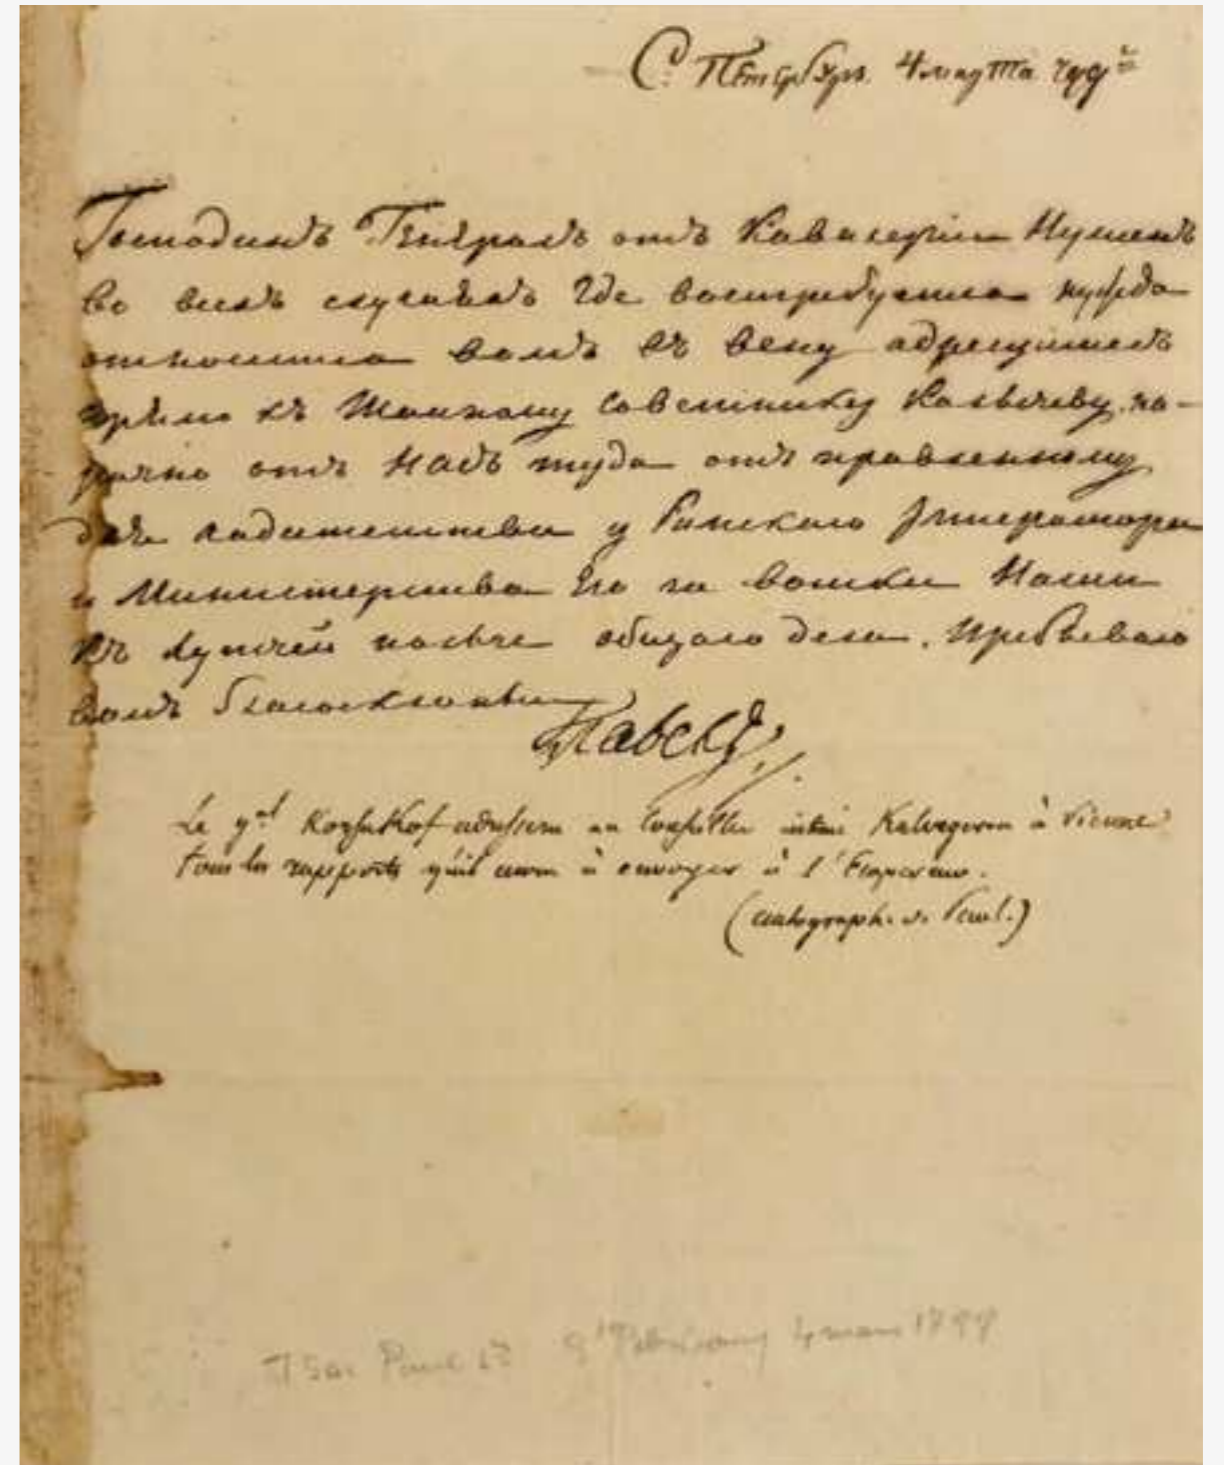 С. Петербург. 4 марта 799
Господинъ Генералъ отъ Кавалеріи Нумсенъ
во всехъ случаяхъ где востребуетца нужда
относитца вамъ въ вену адресуитесь
прямо къ Тайному Советнику Колычеву, на-
рочно отъ Насъ туда отправленному
для ходатейства у Римскаго Императора
и Министерства Его за войски Наши
къ лутчей пользе общаго дела. Пребываю
вамъ благосклоннымъ
Павелъ
Le gal Korsakof adressera au Conseiller intime à Vienne
tous les rapports qu'il aura à envoyer à l'Empereur.
(autograph. v. Paul.)
Tsar Paul 4 mars 1799